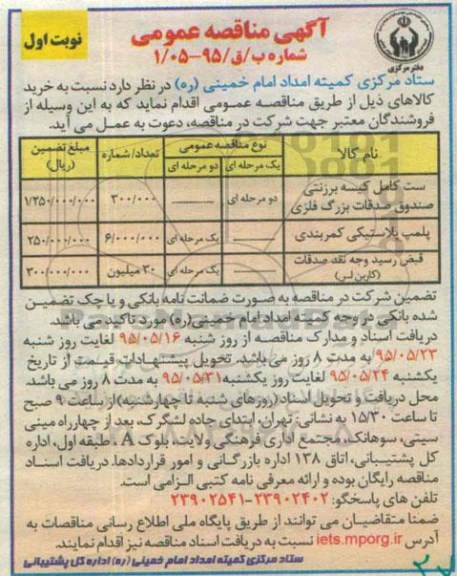 آگهی مناقصه عمومی
شماره ب/ق/۹۵-۱/۰۵
نوبت اول
دفتر مرکزی
ستاد مرکزی کمیته امداد امام خمینی (ره) در نظر دارد نسبت به خرید
کالاهای ذیل از طریق مناقصه عمومی اقدام نماید که به این وسیله از
فروشندگان معتبر جهت شرکت در مناقصه، دعوت به عمل می آید.
نام کالا نوع مناقصه عمومی تعداد/شماره مبلغ تضمین (ریال)
یک مرحله ای دو مرحله ای
ست کامل کیسه برزنتی
صندوق صدقات بزرگ فلزی دو مرحله ای ۳۰۰/۰۰۰ ۱/۲۵۰/۰۰۰/۰۰۰
پلمپ پلاستیکی کمربندی یک مرحله ای ۶/۰۰۰/۰۰۰ ۲۵۰/۰۰۰/۰۰۰
قبض رسید وجه نقد صدقات
(کاربن لس) یک مرحله ای ۳۰ میلیون ۳۰۰/۰۰۰/۰۰۰
تضمین شرکت در مناقصه به صورت ضمانت نامه بانکی و یا چک تضمین
شده بانکی در وجه کمیته امداد امام خمینی(ره) مورد تاکید می باشد.
دریافت اسناد و مدارک مناقصه از روز شنبه ۹۵/۰۵/۱۶ لغایت روز شنبه
۹۵/۰۵/۲۳ به مدت ۸ روز می باشد. تحویل پیشنهادات قیمت از تاریخ
یکشنبه ۹۵/۰۵/۲۴ لغایت روز یکشنبه ۹۵/۰۵/۳۱ به مدت ۸ روز می باشد.
محل دریافت و تحویل اسناد (روزهای شنبه تا چهارشنبه) از ساعت ۹ صبح
تا ساعت ۱۵/۳۰ به نشانی: تهران، ابتدای جاده لشگرک، بعد از چهارراه مینی
سیتی، سوهانک، مجتمع اداری فرهنگی ولایت، بلوک A، طبقه اول، اداره
کل پشتیبانی، اتاق ۱۳۸ اداره بازرگانی و امور قراردادها. دریافت اسناد
مناقصه رایگان بوده و ارائه معرفی نامه کتبی الزامی است.
تلفن های پاسخگو: ۲۳۹۰۲۴۰۲-۲۳۹۰۲۵۴۱
ضمنا متقاضیان می توانند از طریق پایگاه ملی اطلاع رسانی مناقصات به
آدرس iets.mporg.ir نسبت به دریافت اسناد مناقصه نیز اقدام نمایند.
ستاد مرکزی کمیته امداد امام خمینی (ره) اداره کل پشتیبانی